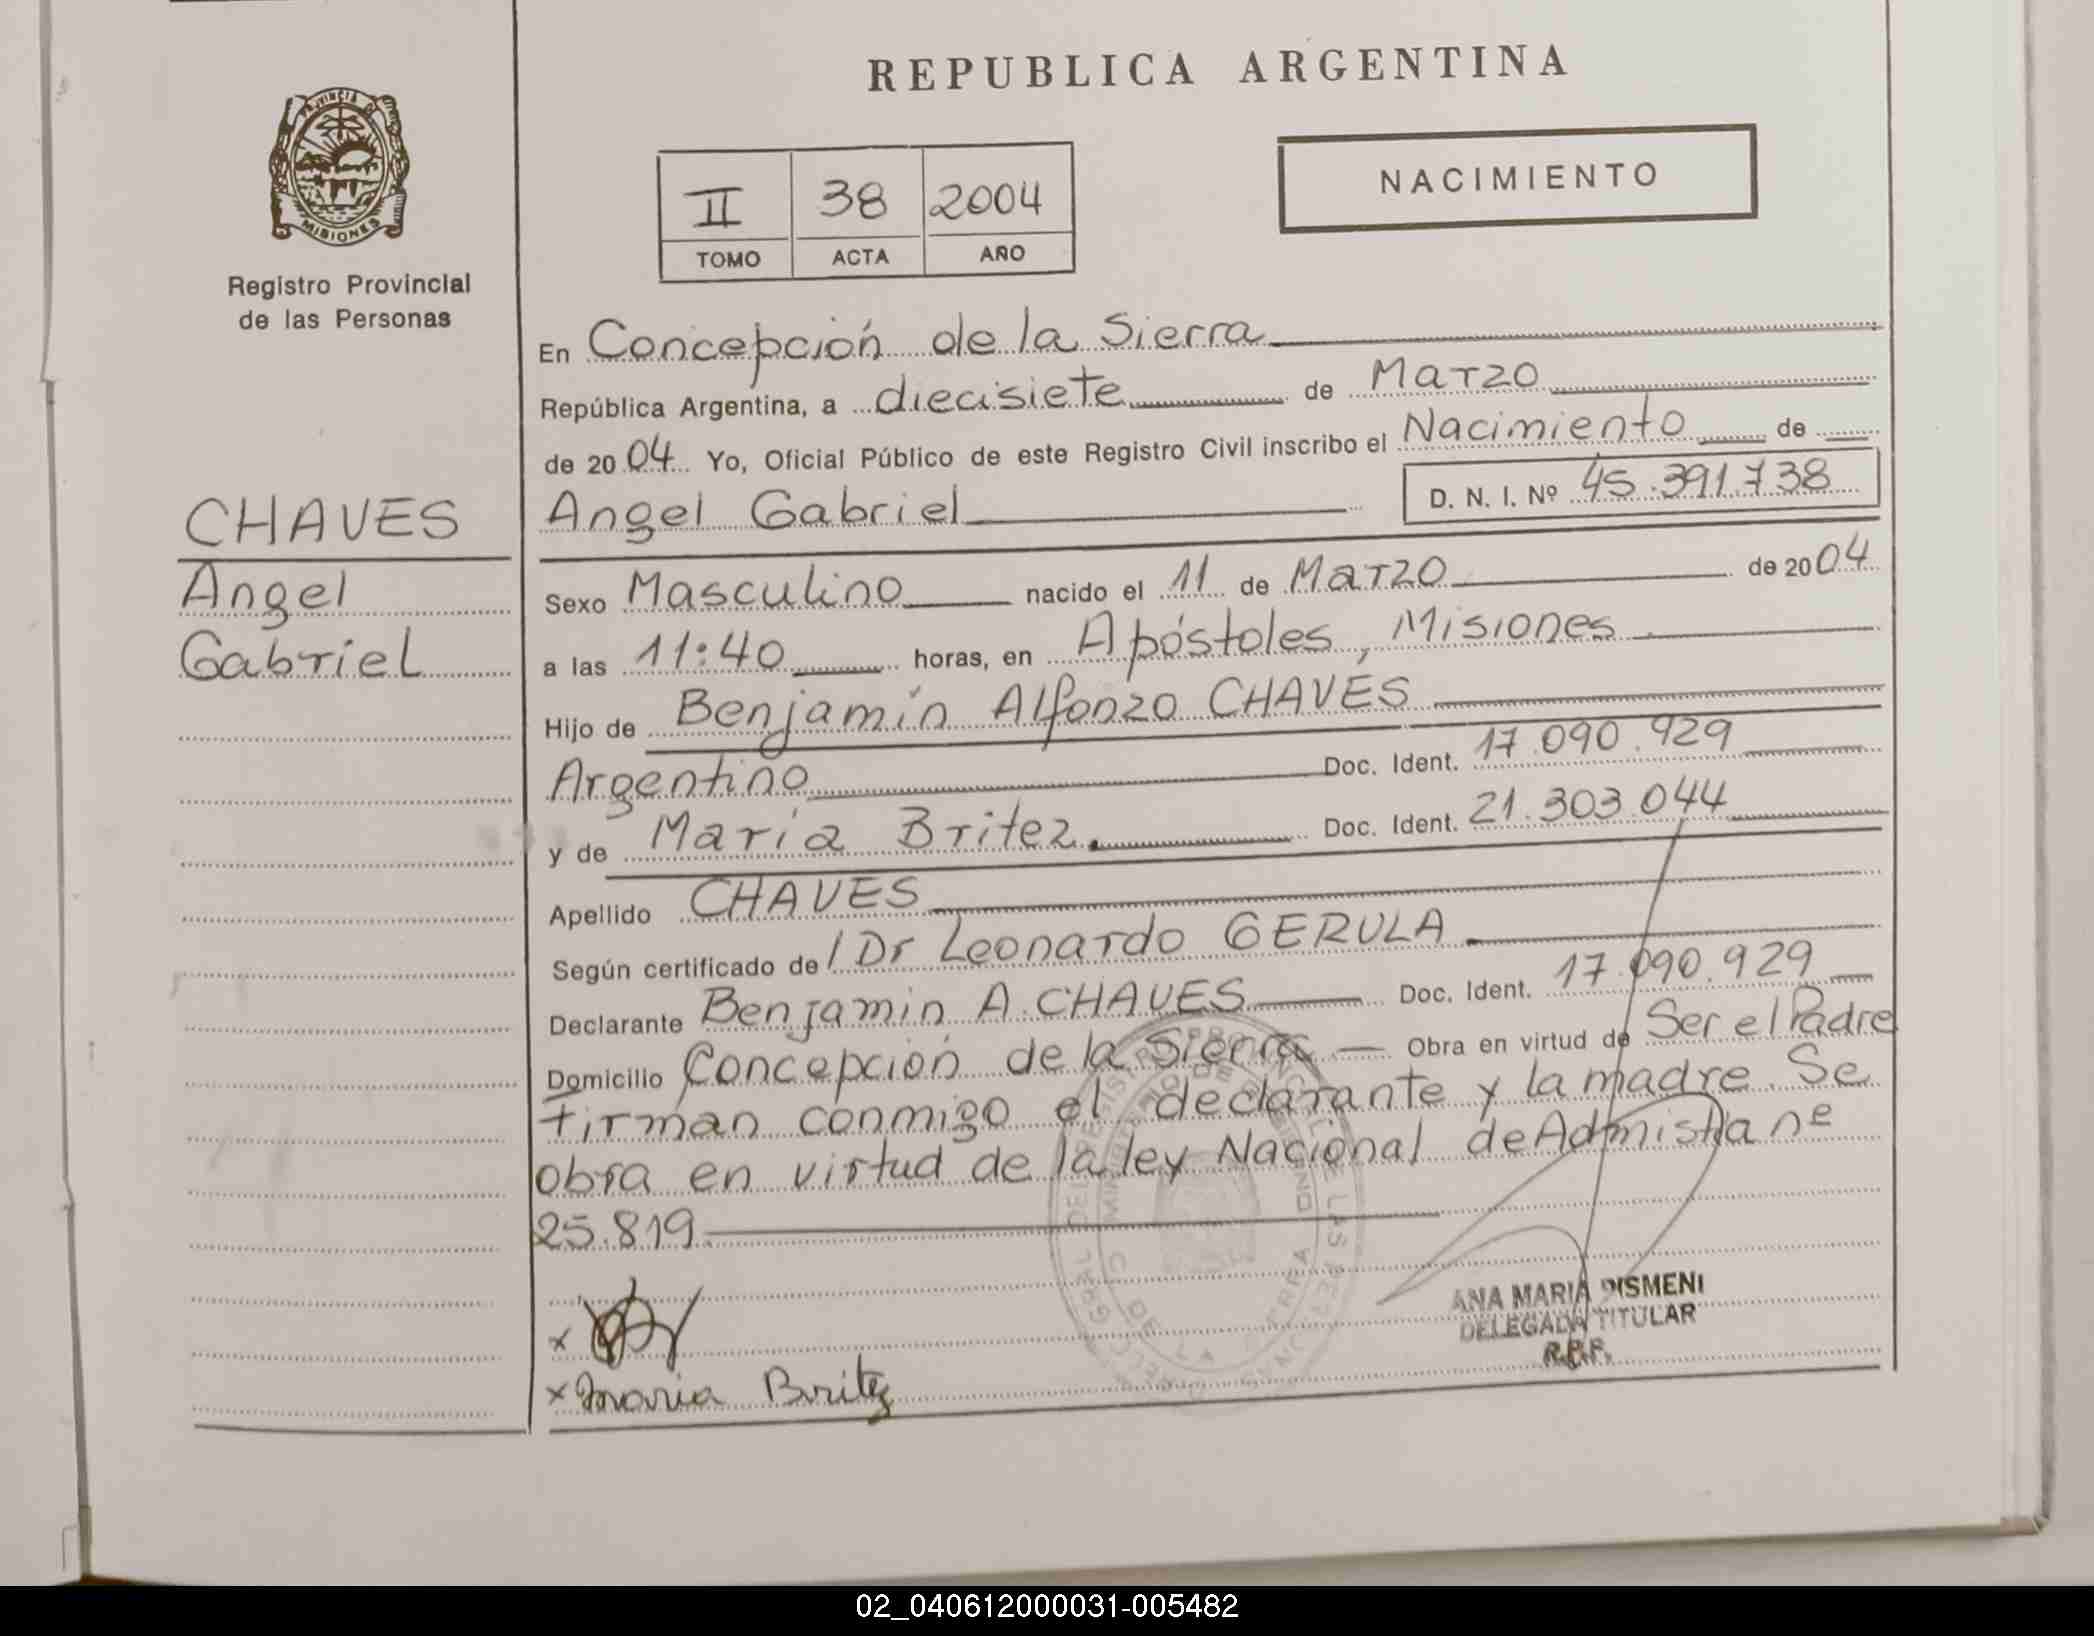 REPUBLICA ARGENTINA
PROVINCIA D MISIONES
Registro Provincial
de las Personas
II 38 2004
TOMO ACTA AÑO
NACIMIENTO
En Concepción de la Sierra
República Argentina, a diecisiete de Marzo
de 2004 Yo, Oficial Público de este Registro Civil inscribo el Nacimiento de
Angel Gabriel D. N. I. Nº 45.391.738
CHAVES
Angel
Gabriel
Sexo Masculino nacido el 11 de Marzo de 2004
a las 11:40 horas, en Apóstoles, Misiones
Hijo de Benjamín Alfonzo CHAVES
Argentino Doc. Ident. 17.090.929
y de María Britez Doc. Ident. 21.303.044
Apellido CHAVES
Según certificado de / Dr Leonardo GERULA
Declarante Benjamin A. CHAVES Doc. Ident. 17.090.929
Domicilio Concepción de la Sierra — Obra en virtud de Ser el Padre
firman conmigo el declarante y la madre. Se
obra en virtud de la ley Nacional de Admistra nº
25.819
x
x Maria Britez
ANA MARIA PISMENI
DELEGADA TITULAR
R.P.P.
02_040612000031-005482